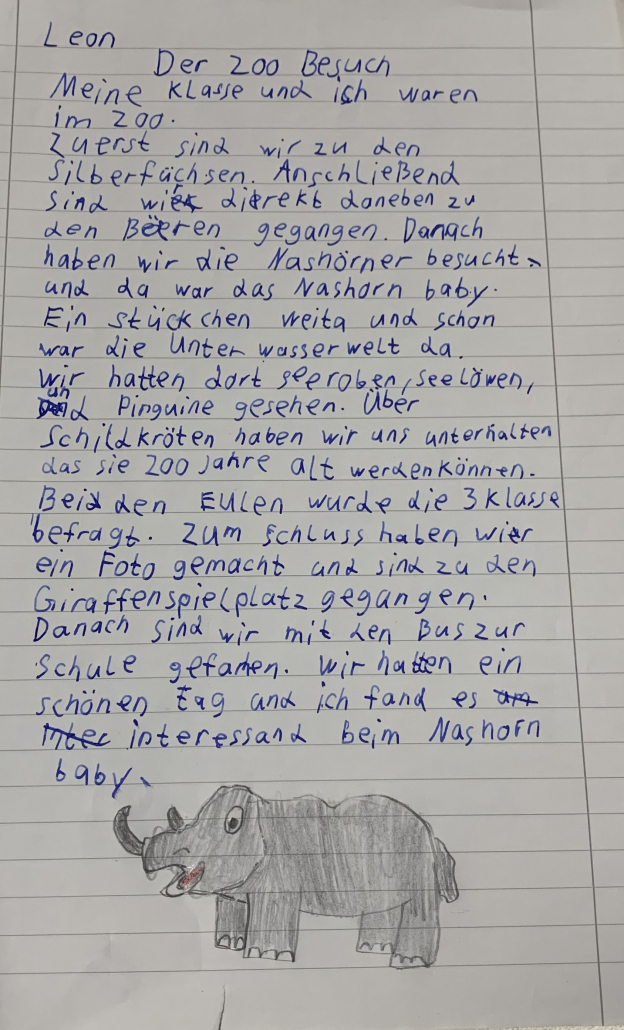 Leon
Der Zoo Besuch
Meine Klasse und ich waren
im Zoo.
Zuerst sind wir zu den
Silberfächsen. Anschließend
sind wir direkt daneben zu
den Bären gegangen. Danach
haben wir die Nashörner besucht,
und da war das Nashorn baby.
Ein stückchen weita und schon
war die Unter wasserwelt da.
Wir hatten dort seeroben, seelöwen,
und Pinguine gesehen. Über
Schildkröten haben wir uns unterhalten
das sie 200 Jahre alt werden können.
Bei den Eulen wurde die 3 klasse
befragt. Zum schluss haben wir
ein Foto gemacht und sind zu den
Giraffenspielplatz gegangen.
Danach sind wir mit den Bus zur
Schule gefahren. Wir hatten ein
schönen tag und ich fand es
interessand beim Nashorn
baby.